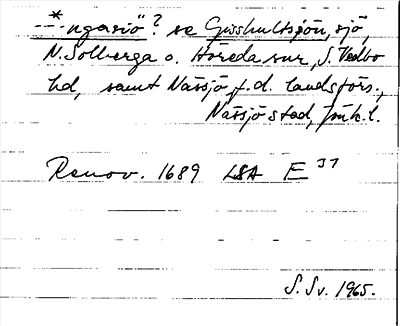 *--ngasiö? se Gisshultsjön, sjö,
N. Solberga o. Höreda snr, S. Vedbo
hd, samt Nässjö f.d. landsförs.,
Nässjö stad, Jönk. l.
Renov. 1689 LSA E 37
S. Sv. 1965.